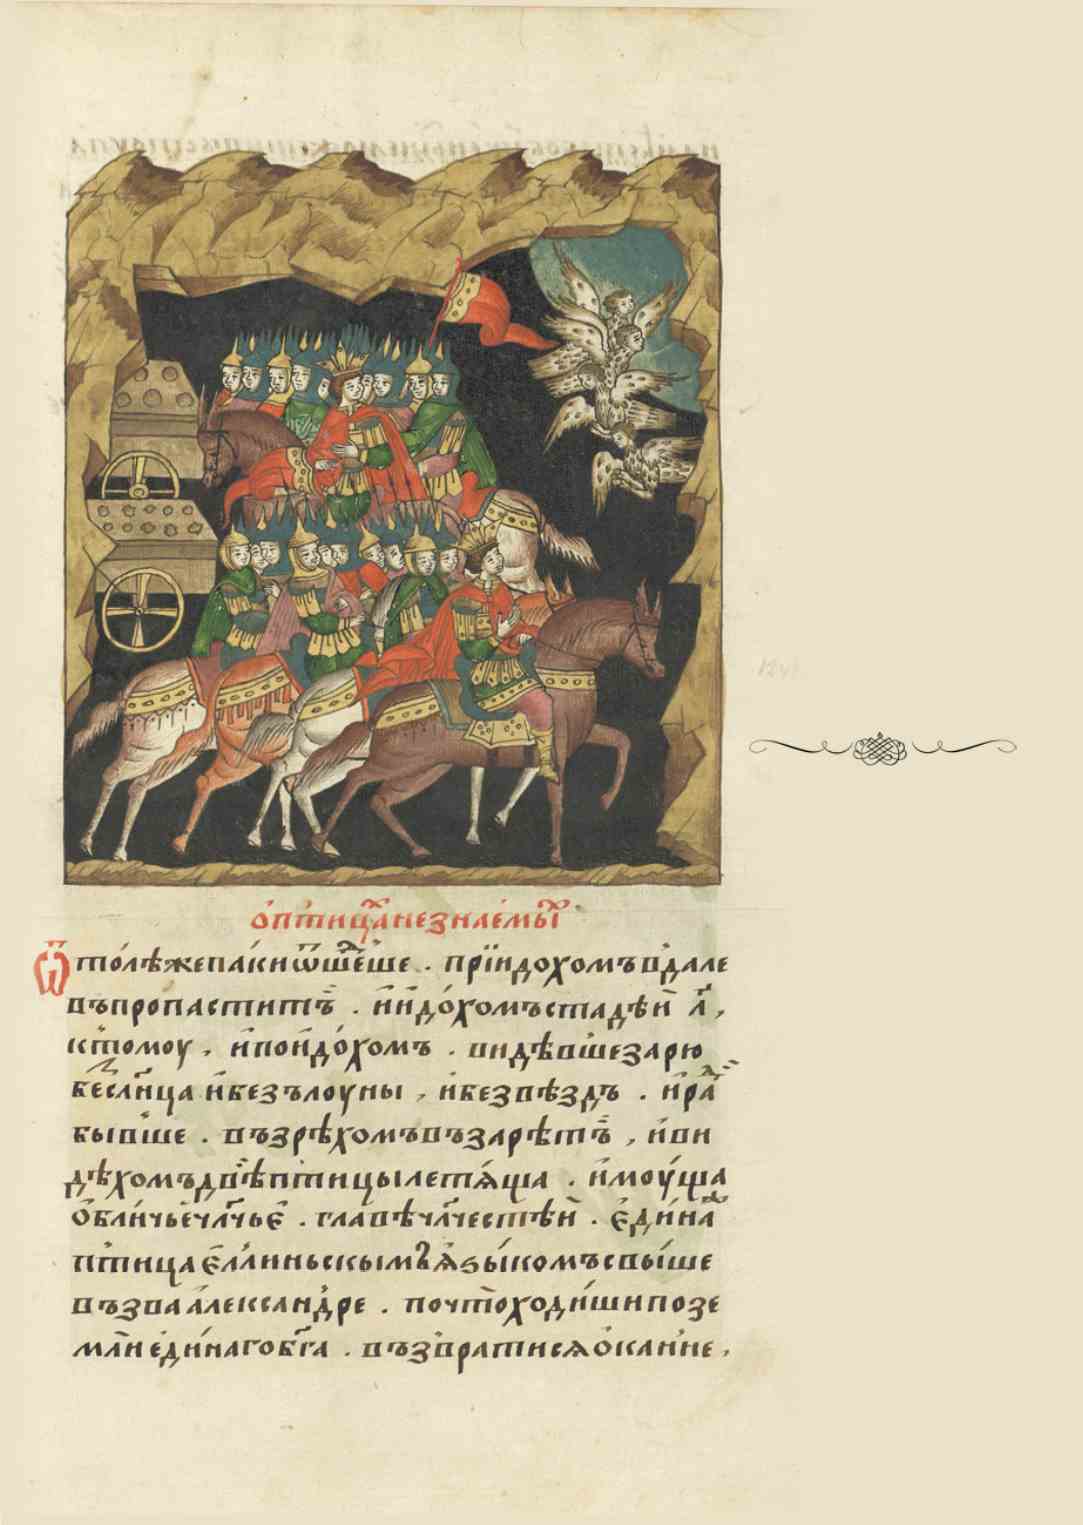 ѻ҆птицанезнае́мы
Ѿто́лѣжепа́киѿше́ше . прїидохомъвдале
въпропаститъ . и҆и҆до́хомъстадѣи л҃,
кⷭ҇томоу , и҆пои҆до́хомъ . видѣвшезарю
бесл҃нца и҆безълоуны , и҆безвѣздъ . и҆ра
бывше . възрѣхомъвъзарѣтъ , и҆ви
дѣхомъдвѣптицылетѧ́ща . и҆моу́ща
ѻ҆бли́чьечл҃чье . главѣчл҃честѣи . є҆ди́на
птицає҆ллиньскымъꙗ҆ѕы́комъсвы́ше
възваа҆леѯандре . почтоходи́шипозе
млиеди́нагобг҃а . възвратисѧѻ҆каине ,